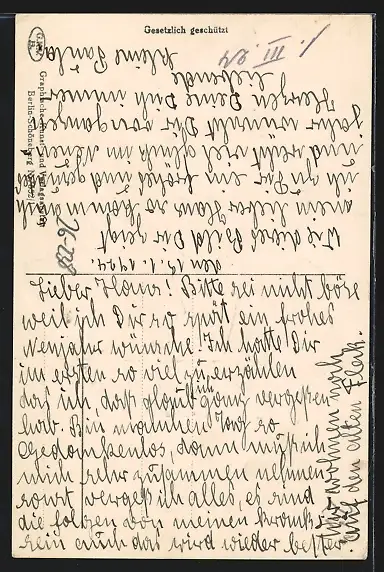 Gesetzlich geschützt
den 19.1.1924.
Wie dieses Bild Dir zeigt
mein lieber Hans so komm auch
ich zu Dir ein fröhes und gesundes
und recht viel Glück im neuen
Jahr wünscht Dir von ganzem
Herzen Deine Dich immer
liebende
kleine Paula
Lieber Hans! Bitte sei nicht böse
weil ich Dir so spät ein frohes
Neujahr wünsche! Ich hatte Dir
im ersten so viel zu erzählen
das ich, daß glaub ich ganz vergessen
hab. Bin manchen Tag so
Gedankenlos, dann muß ich
mich sehr zusammen nehmen
sonst vergeß ich alles, es sind
die folgen von meinen krank
sein auch das wird wieder besser
wir wohnen noch
auf den alten Fleck.
Graphisches und Verlags
Berlin-Schöneberg